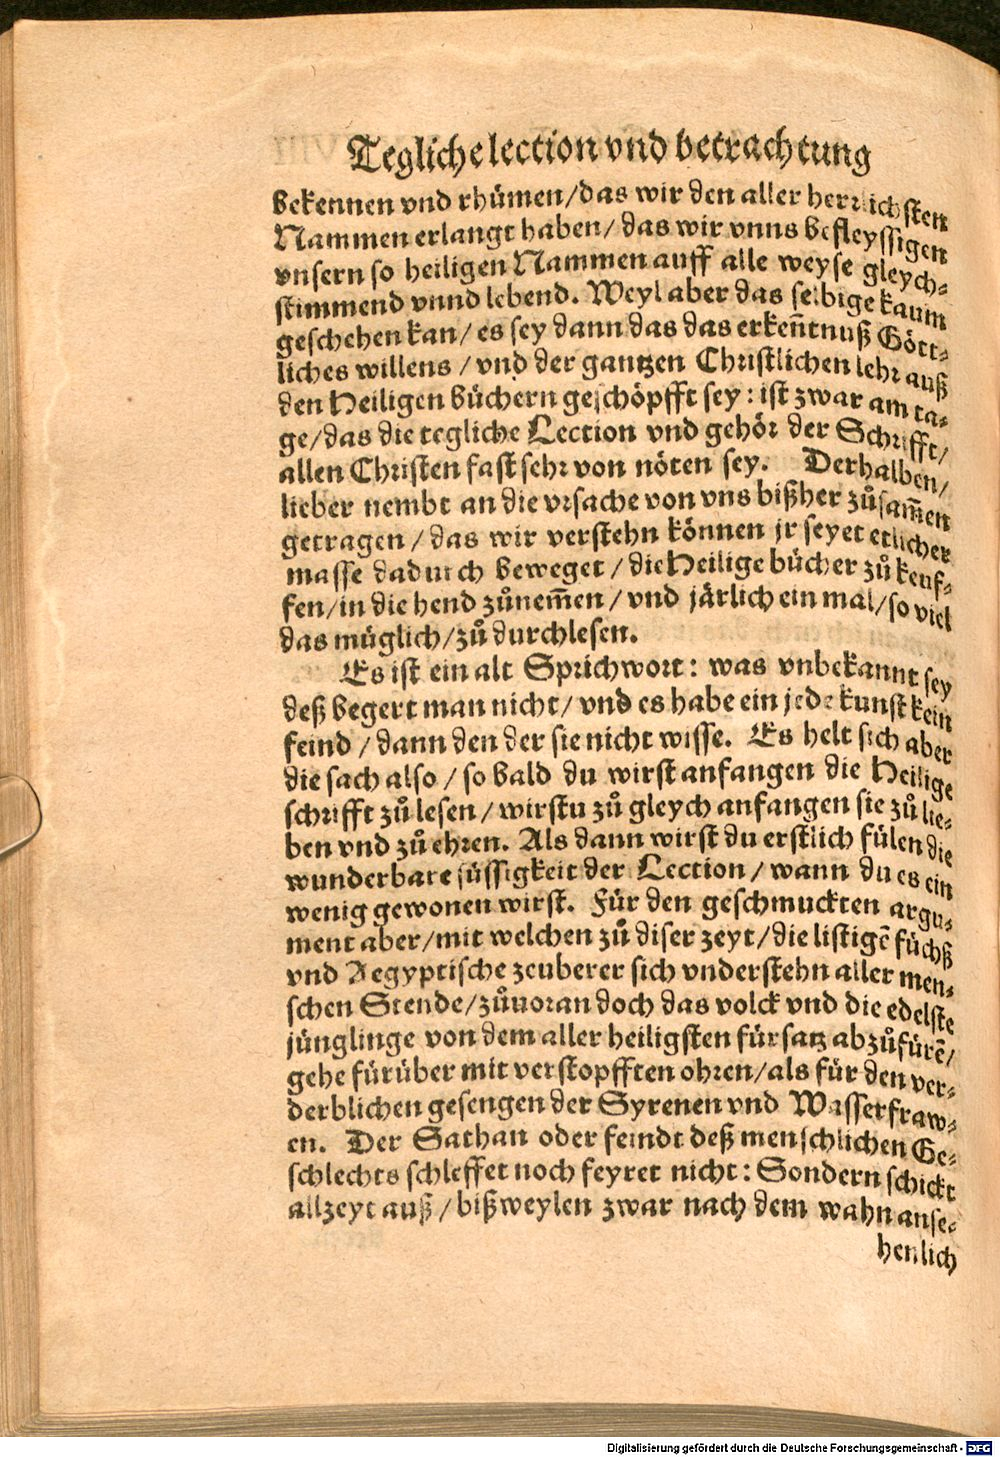 Tegliche lection vnd betrachtung
bekennen vnd rhümen/das wir den aller herrlichsten
Nammen erlangt haben/das wir vnns befleyssigen
vnsern so heiligen Nammen auff alle weyse gleych-
stimmend vnnd lebend. Weyl aber das selbige kaum
geschehen kan/es sey dann das das erkeñtnuß Gött-
liches willens/vnd der gantzen Christlichen lehr auß
den Heiligen büchern geschöpfft sey: ist zwar am ta-
ge/das die tegliche Lection vnd gehör der Schrifft/
allen Christen fast sehr von nöten sey. Derhalben/
lieber nembt an die vrsache von vns bißher zůsam̃en
getragen/das wir verstehn können jr seyet etlicher
masse dadurch beweget/die Heilige bücher zů keuf-
fen/in die hend zůnem̃en/vnd järlich ein mal/so viel
das müglich/zů durchlesen.
Es ist ein alt Sprichwort: was vnbekannt sey
deß begert man nicht/vnd es habe ein jede kunst kein
feind/dann den der sie nicht wisse. Es helt sich aber
die sach also/so bald du wirst anfangen die Heilige
schrifft zů lesen/wirstu zů gleych anfangen sie zů lie-
ben vnd zů ehren. Als dann wirst du erstlich fülen die
wunderbare süssigkeit der Lection/wann du es ein
wenig gewonen wirst. Für den geschmuckten argu-
ment aber/mit welchen zů diser zeyt/die listigẽ füchß
vnd Aegyptische zeuberer sich vnderstehn aller men-
schen Stende/zůuoran doch das volck vnd die edelste
jünglinge von dem aller heiligsten fürsatz abzůfürẽ/
gehe fürüber mit verstopfften ohren/als für den ver-
derblichen gesengen der Syrenen vnd Wasserfraw-
en. Der Sathan oder feindt deß menschlichen Ge-
schlechts schleffet noch feyret nicht: Sondern schickt
allzeyt auß/bißweylen zwar nach dem wahn anse-
henlich
Digitalisierung gefördert durch die Deutsche Forschungsgemeinschaft - DFG